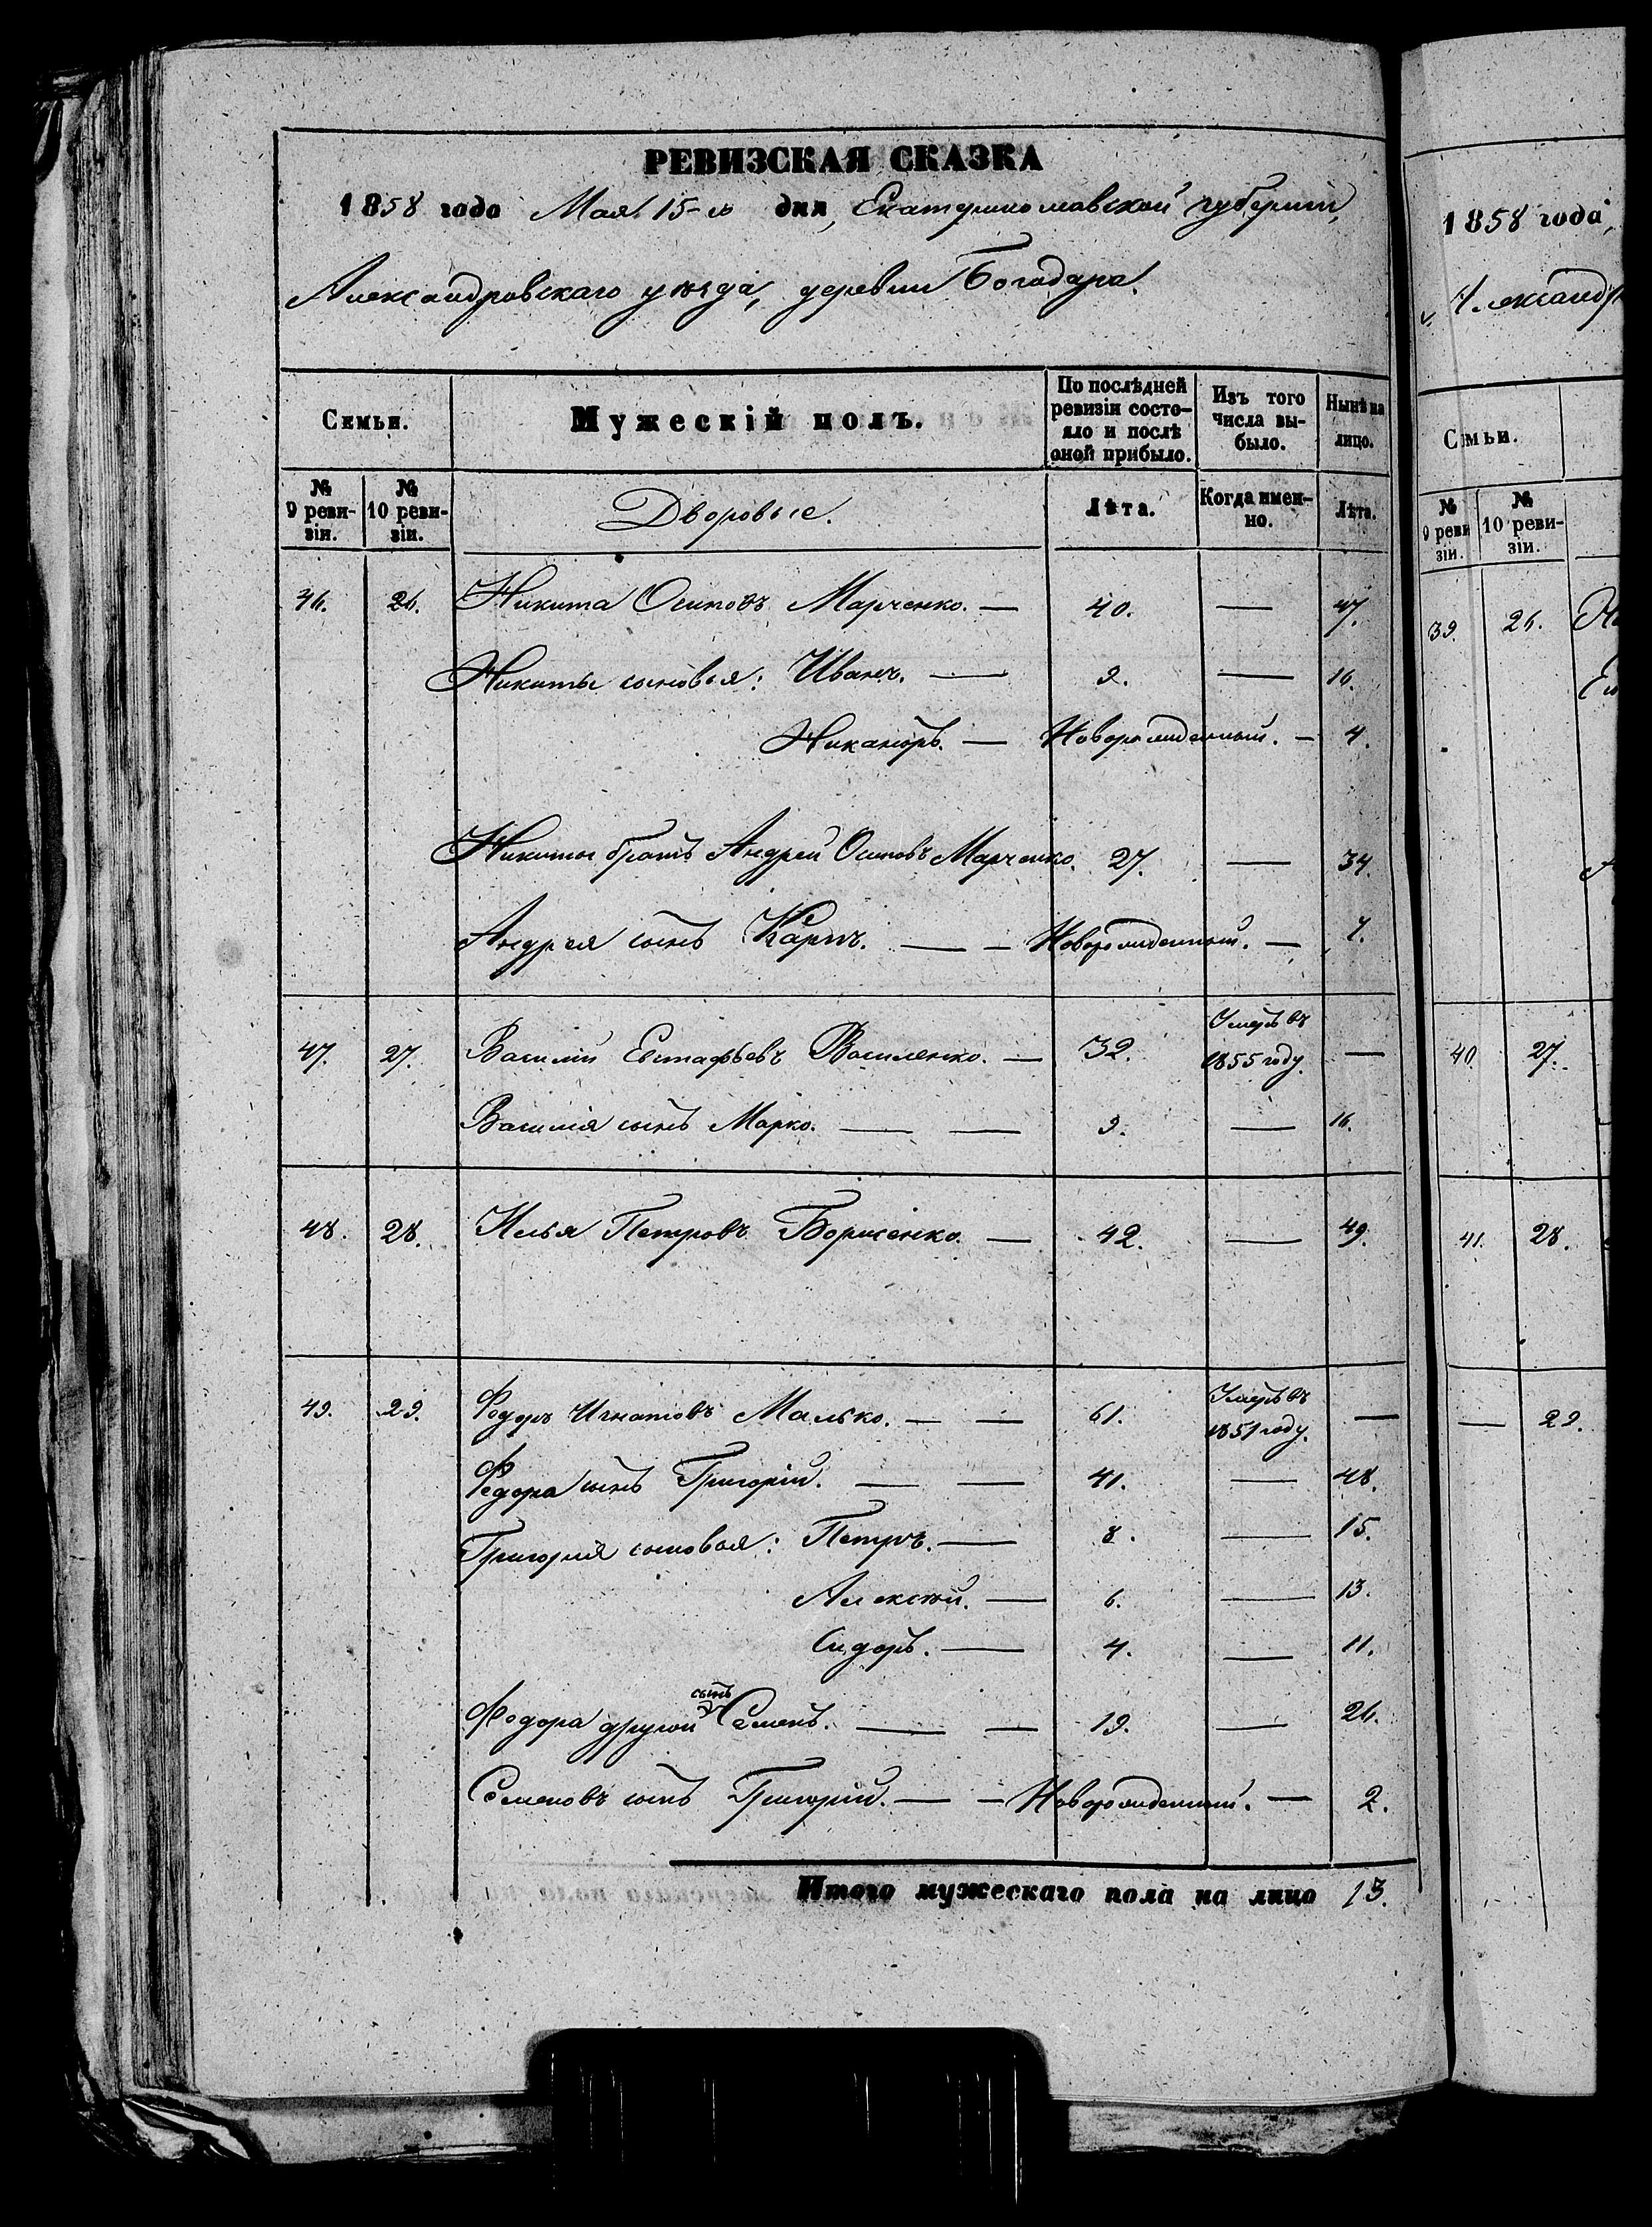 РЕВИЗСКАЯ СКАЗКА
1858 года Мая 15-го дня, Екатеринославской губерніи,
Александровскаго уѣзда, деревни Богодара.
Семьи.
Мужескій полъ.
По послѣдней ревизіи состояло и послѣ оной прибыло.
Изъ того числа выбыло.
Нынѣ на лицо.
№ 9 ревизіи.
№ 10 ревизіи.
Дворовые.
Лѣта.
Когда именно.
Лѣта.
46. 26. Никита Осиповъ Марченко. — 40. — 47.
Никиты сыновья: Иванъ. — 9. — 16.
Никаноръ. — Новорожденный. — 4.
Никиты братъ Андрей Осиповъ Марченко. 27. — 34.
Андрея сынъ Карпъ. — — Новорожденный. —
47. 27. Василій Евстафьевъ Василенко. — 32. Умеръ въ 1855 году. —
Василія сынъ Марко. — — 9. — 16.
48. 28. Илья Петровъ Борисенко. — 42. — 49.
49. 29. Федоръ Игнатовъ Малько. — — 61. Умеръ въ 1851 году. —
Федора сынъ Григорій. — — 41. — 48.
Григорія сыновья: Петръ. — 8. — 15.
Алексѣй. — 6. — 13.
Сидоръ. — 4. — 11.
Федора другой сынъ Семенъ. — — 19. — 26.
Семеновъ сынъ Григорій. — — Новорожденный. — 2.
Итого мужескаго пола на лицо 13.
1858 года,
Александр
Семьи.
№ 9 ревизіи.
№ 10 ревизіи.
39. 26.
40. 27.
41. 28.
— 29.